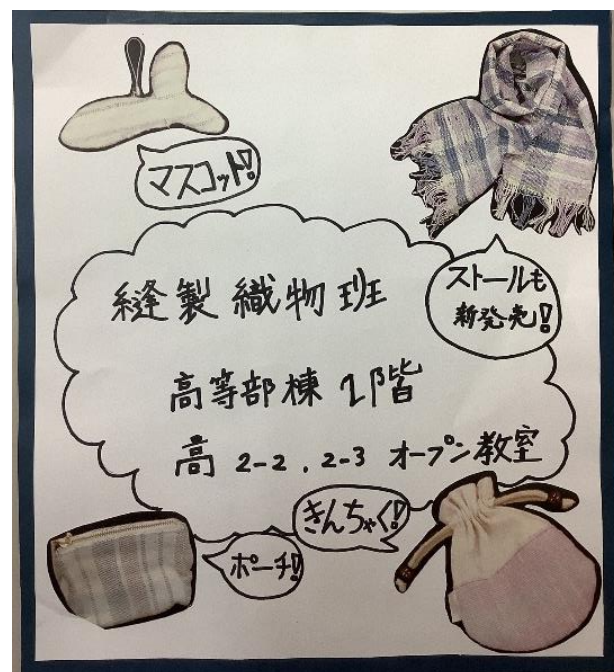 マスコット!
ストールも
新発売!
縫製織物班
高等部棟1階
高 2-2 . 2-3 オープン教室
きんちゃく!
ポーチ!